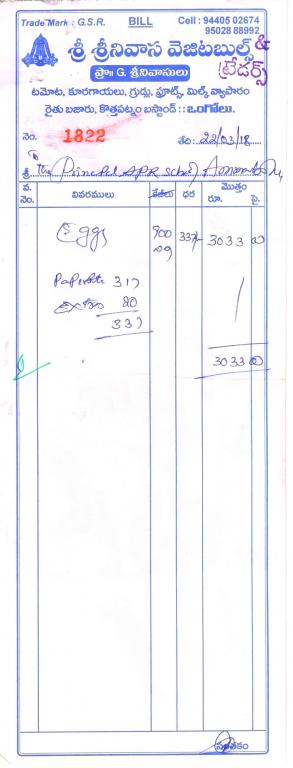 Trade Mark : G.S.R. BILL Cell : 94405 02674
95028 88992
శ్రీ శ్రీనివాస వెజిటబుల్స్ &
ట్రేడర్స్
ప్రొ॥ G. శ్రీనివాసులు
టమోట, కూరగాయలు, గ్రుడ్లు, ఫ్రూట్స్, మిల్క్ వ్యాపారం
రైతు బజారు, కొత్తపట్నం బస్టాండ్ :: ఒంగోలు.
నెం. 1822 తేది: 22/03/18
శ్రీ The Principal APR School
వ. నెం. వివరములు కేజీలు ధర మొత్తం రూ. పై.
Eggs 900 337 3033 00
317
20
337
3033 00
సంతకం